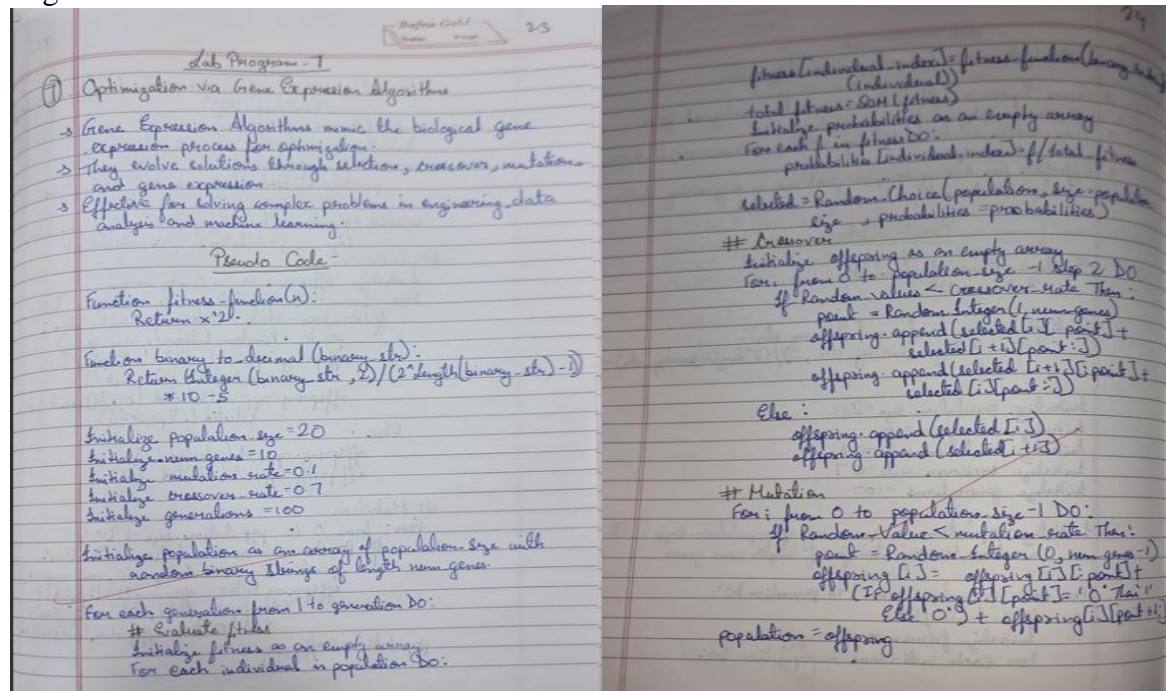 Bafna Gold
23
Lab Program - 7
7 Optimization via Gene Expression Algorithm
→ Gene Expression Algorithms mimic the biological gene
expression process for optimization.
→ They evolve solutions through selection, crossover, mutation
and gene expression.
→ Effective for solving complex problems in engineering, data
analysis and machine learning.
Pseudo Code -
Function fitness-function(x):
Return x^2.
Function binary to decimal (binary_str):
Return Integer (binary-str, 2)/(2^length(binary-str)-1))
* 10 - 5
Initialize population size = 20
Initialize num genes = 10
Initialize mutation rate = 0.1
Initialize crossover rate = 0.7
Initialize generations = 100
Initialize population as an array of population size with
random binary strings of length num genes.
For each generation from 1 to generation DO:
# Evaluate fitness
Initialize fitness as an empty array
For each individual in population DO:
24
fitness[individual-index] = fitness-function(
(individual))
total fitness = SUM(fitness)
Initialize probabilities as an empty array
For each f in fitness DO:
probabilities [individual-index] = f/total-fitness
selected = Random.Choice(population, size = population
size, probabilities = probabilities)
# Crossover
Initialize offspring as an empty array
For i from 0 to population-size -1 step 2 DO.
If Random values < crossover-rate Then:
point = Random Integer(1, num genes)
offspring.append(selected[i][:point] +
selected[i+1][point:])
offspring.append(selected[i+1][:point] +
selected[i][point:])
Else:
offspring.append(selected[i])
offspring.append(selected[i+1])
# Mutation
For i from 0 to population-size -1 DO:
If Random-Value < mutation rate Then:
point = Random-Integer (0, num genes -1)
offspring[i] = offspring[i][:point] +
(If offspring[i][point] = "0" Then "1"
Else "0") + offspring[i][point+1:]
population = offspring